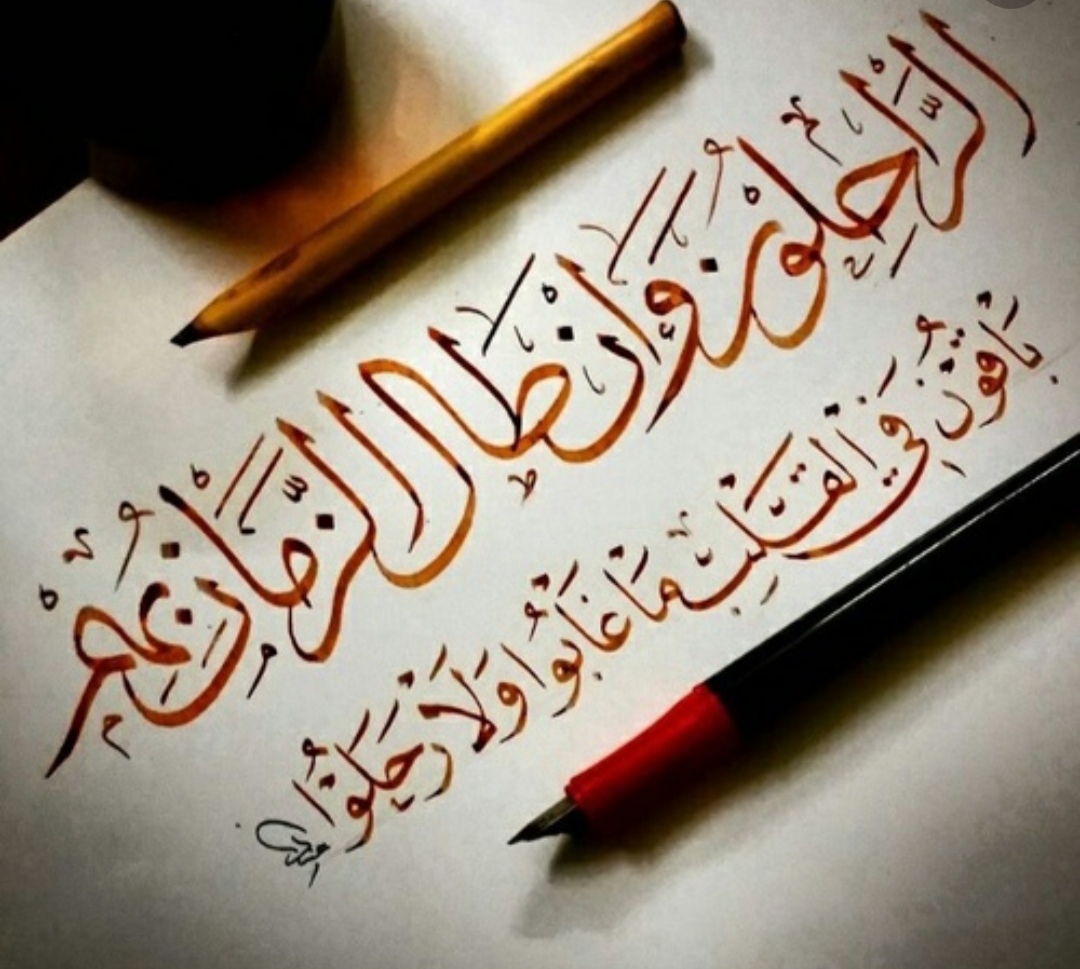 الرَّاحِلُونَ وَإِنْ طَالَ الزَّمَانُ بِهِمْ
بَاقُونَ فِي الْقَلْبِ مَا غَابُوا وَلَا رَحَلُوا